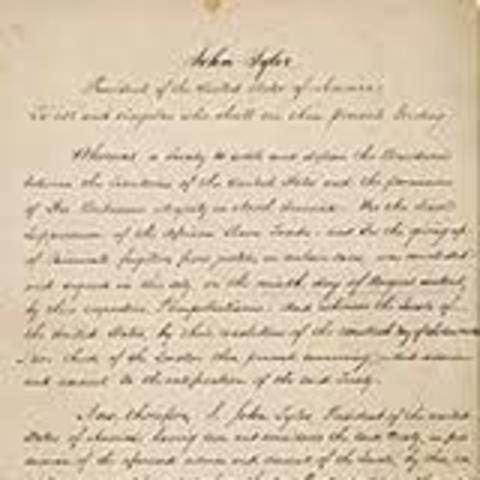 John Tyler
President of the United States of America
To all and singular who shall see these presents Greeting
Whereas a Treaty to settle and define the Boundaries
between the territories of the United States and the possessions
of Her Britannic Majesty in North America: For the final
suppression of the African Slave Trade: and for the giving up
of criminals fugitive from justice, in certain cases, was concluded
and signed in this city, on the ninth day of August
by their respective Plenipotentiaries: And whereas the Senate of
the United States, by their resolution of the
of the Senators then present concurring, did advise
and consent to the ratification of the said Treaty.
Now, therefore, I, John Tyler, President of the United
States of America, having seen and considered the said Treaty, do
of the aforesaid advice and consent of the Senate, by these